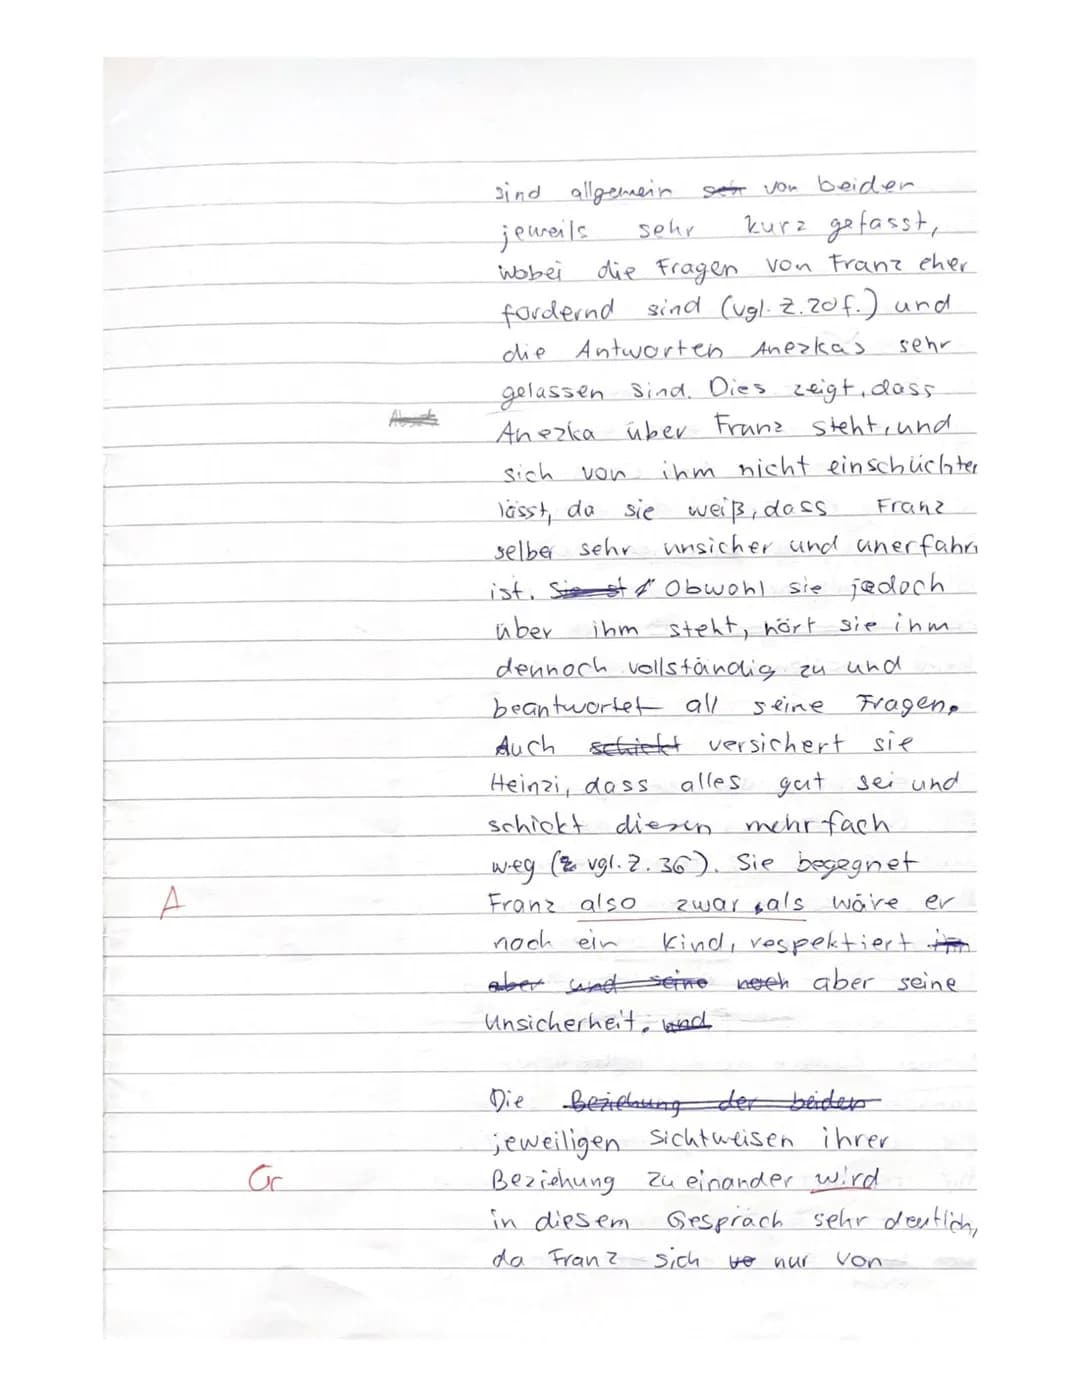 sind allgemein von beiden
jeweils sehr kurz gefasst,
wobei die Fragen von Franz eher
fordernd sind (vgl. Z. 20f.) und
die Antworten Anezkas sehr
gelassen sind. Dies zeigt, dass
Anezka über Franz steht, und
sich von ihm nicht einschüchter
lässt, da sie weiß, dass Franz
selber sehr unsicher und unerfahr
ist. Obwohl sie jedoch
über ihm steht, hört sie ihm
dennoch vollständig zu und
beantwortet all seine Fragen.
Auch schickt versichert sie
Heinzi, dass alles gut sei und
schickt diesen mehrfach
weg (vgl. Z. 36). Sie begegnet
A Franz also zwar, als wäre er
noch ein Kind, respektiert ihn
aber und seine noch aber seine
Unsicherheit. und
Die Beziehung der beiden
jeweiligen Sichtweisen ihrer
Gr Beziehung zu einander wird
in diesem Gespräch sehr deutlich,
da Franz sich vo nur von